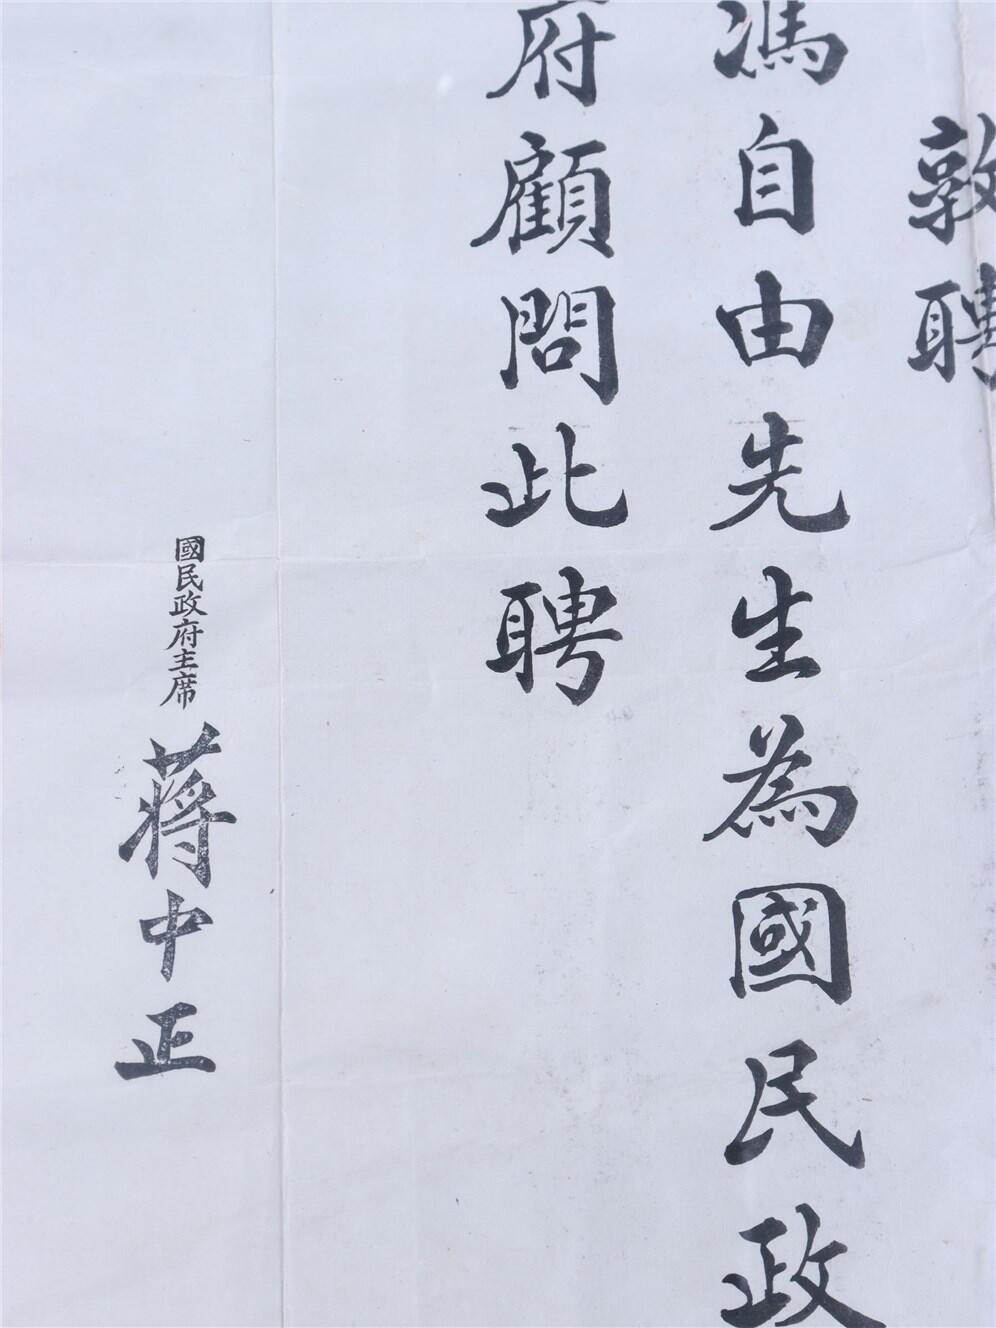 敦聘
馮自由先生為國民政
府顧問此聘
國民政府主席 蔣中正